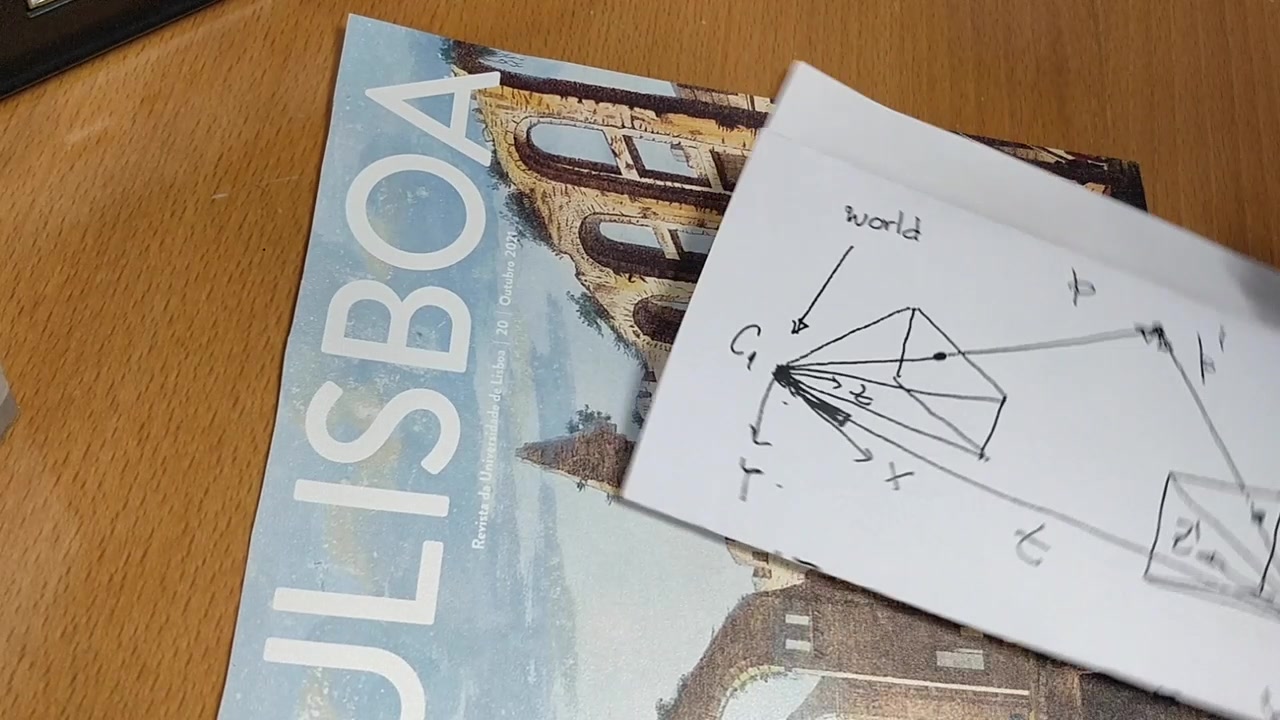 ULISBOA
Revista da Universidade de Lisboa | 20 | Outubro 2021
world
C1
P
P'
Z
X
Y